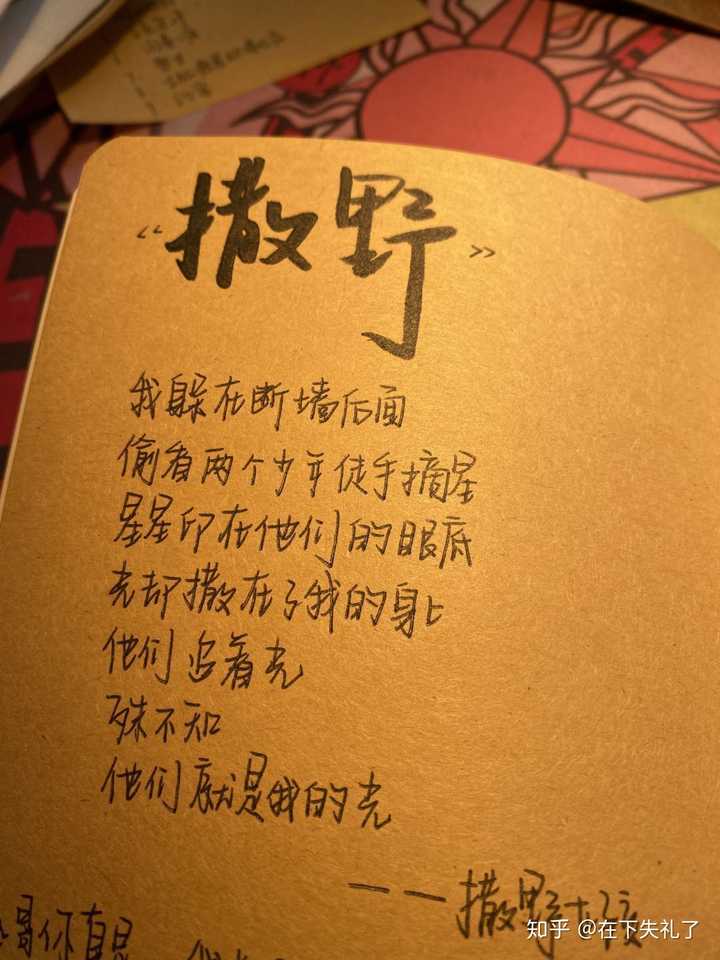 “撒野”
我躲在断墙后面
偷看两个少年徒手摘星
星星印在他们的眼底
光却撒在了我的身上
他们追着光
殊不知
他们就是我的光
——撒野女孩
哥你真是
知乎 @在下失礼了